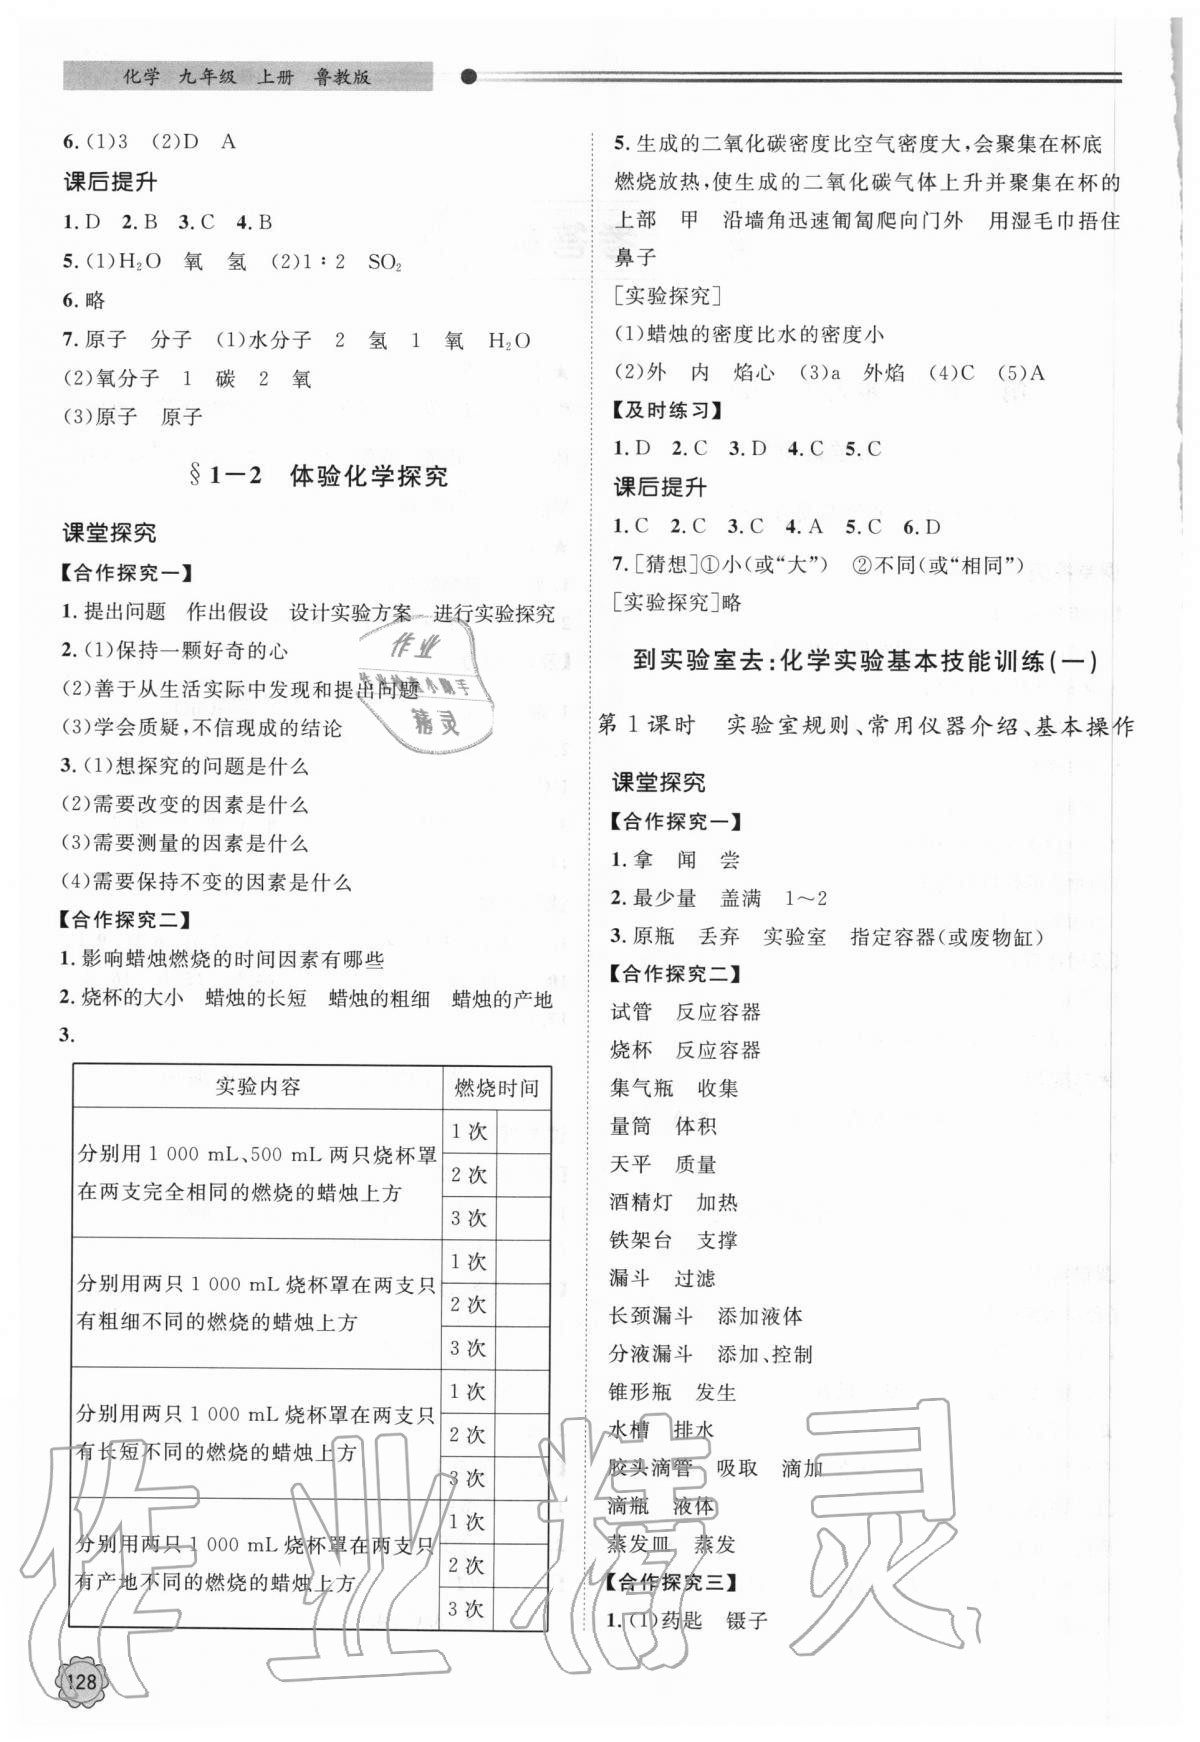 化学 九年级 上册 鲁教版
6.(1)3 (2)D A
课后提升
1.D 2.B 3.C 4.B
5.(1)H₂O 氧 氢 (2)1∶2 SO₂
6.略
7.原子 分子 (1)水分子 2 氢 1 氧 H₂O
(2)氧分子 1 碳 2 氧
(3)原子 原子
§1－2 体验化学探究
课堂探究
【合作探究一】
1.提出问题 作出假设 设计实验方案 进行实验探究
2.(1)保持一颗好奇的心
(2)善于从生活实际中发现和提出问题
(3)学会质疑,不信现成的结论
3.(1)想探究的问题是什么
(2)需要改变的因素是什么
(3)需要测量的因素是什么
(4)需要保持不变的因素是什么
【合作探究二】
1.影响蜡烛燃烧的时间因素有哪些
2.烧杯的大小 蜡烛的长短 蜡烛的粗细 蜡烛的产地
3.
实验内容 燃烧时间
分别用 1 000 mL、500 mL 两只烧杯罩
在两支完全相同的燃烧的蜡烛上方
1 次
2 次
3 次
分别用两只 1 000 mL 烧杯罩在两支只
有粗细不同的燃烧的蜡烛上方
1 次
2 次
3 次
分别用两只 1 000 mL 烧杯罩在两支只
有长短不同的燃烧的蜡烛上方
1 次
2 次
3 次
分别用两只 1 000 mL 烧杯罩在两支只
有产地不同的燃烧的蜡烛上方
1 次
2 次
3 次
128
5.生成的二氧化碳密度比空气密度大,会聚集在杯底
燃烧放热,使生成的二氧化碳气体上升并聚集在杯的
上部 甲 沿墙角迅速匍匐爬向门外 用湿毛巾捂住
鼻子
[实验探究]
(1)蜡烛的密度比水的密度小
(2)外 内 焰心 (3)a 外焰 (4)C (5)A
【及时练习】
1.D 2.C 3.D 4.C 5.C
课后提升
1.C 2.C 3.C 4.A 5.C 6.D
7.[猜想]①小(或“大”) ②不同(或“相同”)
[实验探究]略
到实验室去:化学实验基本技能训练(一)
第1课时 实验室规则、常用仪器介绍、基本操作
课堂探究
【合作探究一】
1.拿 闻 尝
2.最少量 盖满 1～2
3.原瓶 丢弃 实验室 指定容器(或废物缸)
【合作探究二】
试管 反应容器
烧杯 反应容器
集气瓶 收集
量筒 体积
天平 质量
酒精灯 加热
铁架台 支撑
漏斗 过滤
长颈漏斗 添加液体
分液漏斗 添加、控制
锥形瓶 发生
水槽 排水
胶头滴管 吸取 滴加
滴瓶 液体
蒸发皿 蒸发
【合作探究三】
1.(1)药匙 镊子
作业
作业检查小助手
精灵
作业精灵